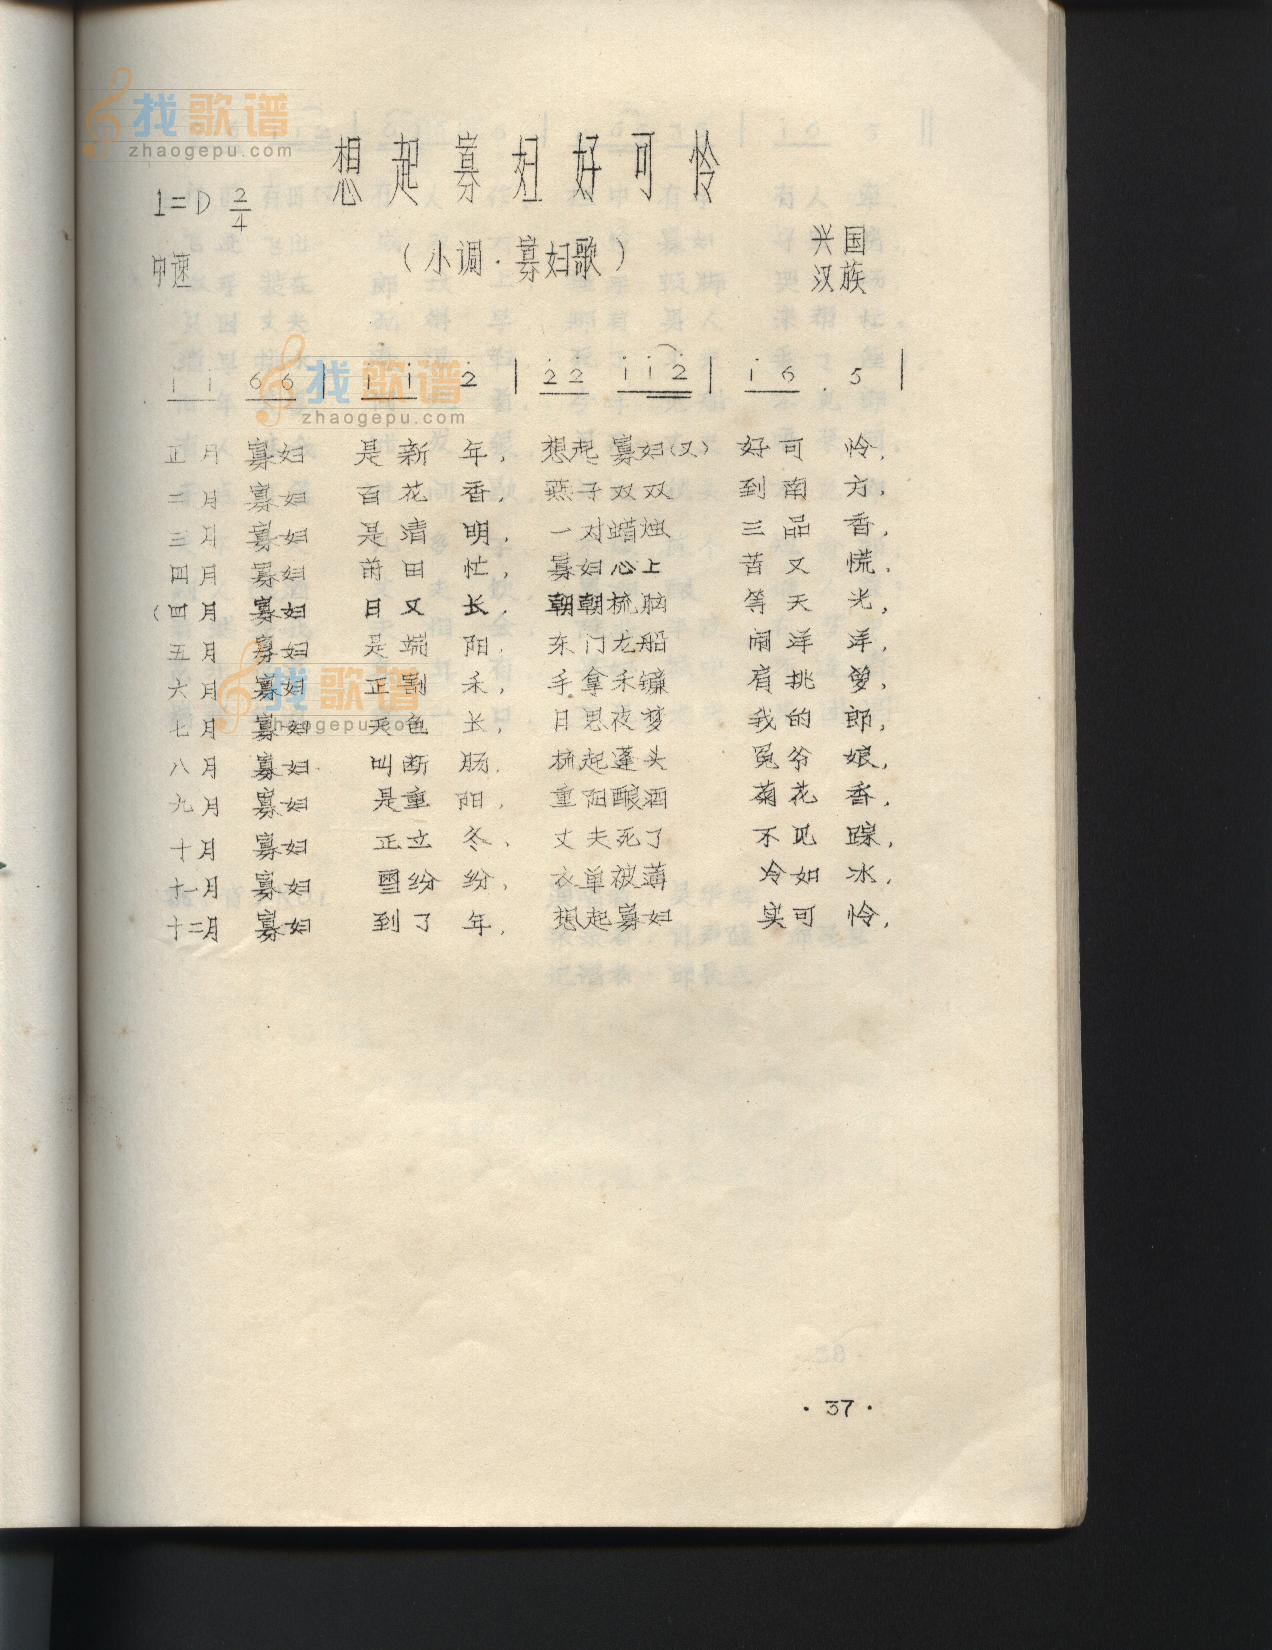 找歌谱
zhaogepu.com
想起寡妇好可怜
1=D 2/4
(小调·寡妇歌)
兴国
中速
汉族
i i 6 6 | i i 2 | 2 2 i i 2 | i 6 . 5 |
找歌谱
zhaogepu.com
正月 寡妇 是新 年, 想起 寡妇(又) 好可 怜,
二月 寡妇 百花 香, 燕子双双 到南 方,
三月 寡妇 是清 明, 一对蜡烛 三品 香,
四月 寡妇 莳田 忙, 寡妇心上 苦又 慌.
(四月 寡妇 日又 长, 朝朝梳脑 等天 光,
五月 寡妇 是端 阳, 东门龙船 闹洋 洋,
六月 寡妇 正割 禾, 手拿禾镰 肩挑 箩,
七月 寡妇 天色 长, 日思夜梦 我的 郎,
找歌谱
zhaogepu.com
八月 寡妇 叫断 肠. 梳起蓬头 冤爷 娘,
九月 寡妇 是重 阳, 重阳酿酒 菊花 香,
十月 寡妇 正立 冬, 丈夫死了 不见 踪,
十一月 寡妇 雪纷 纷, 衣单被薄 冷如 冰,
十二月 寡妇 到了 年, 想起寡妇 实可 怜,
· 37 ·